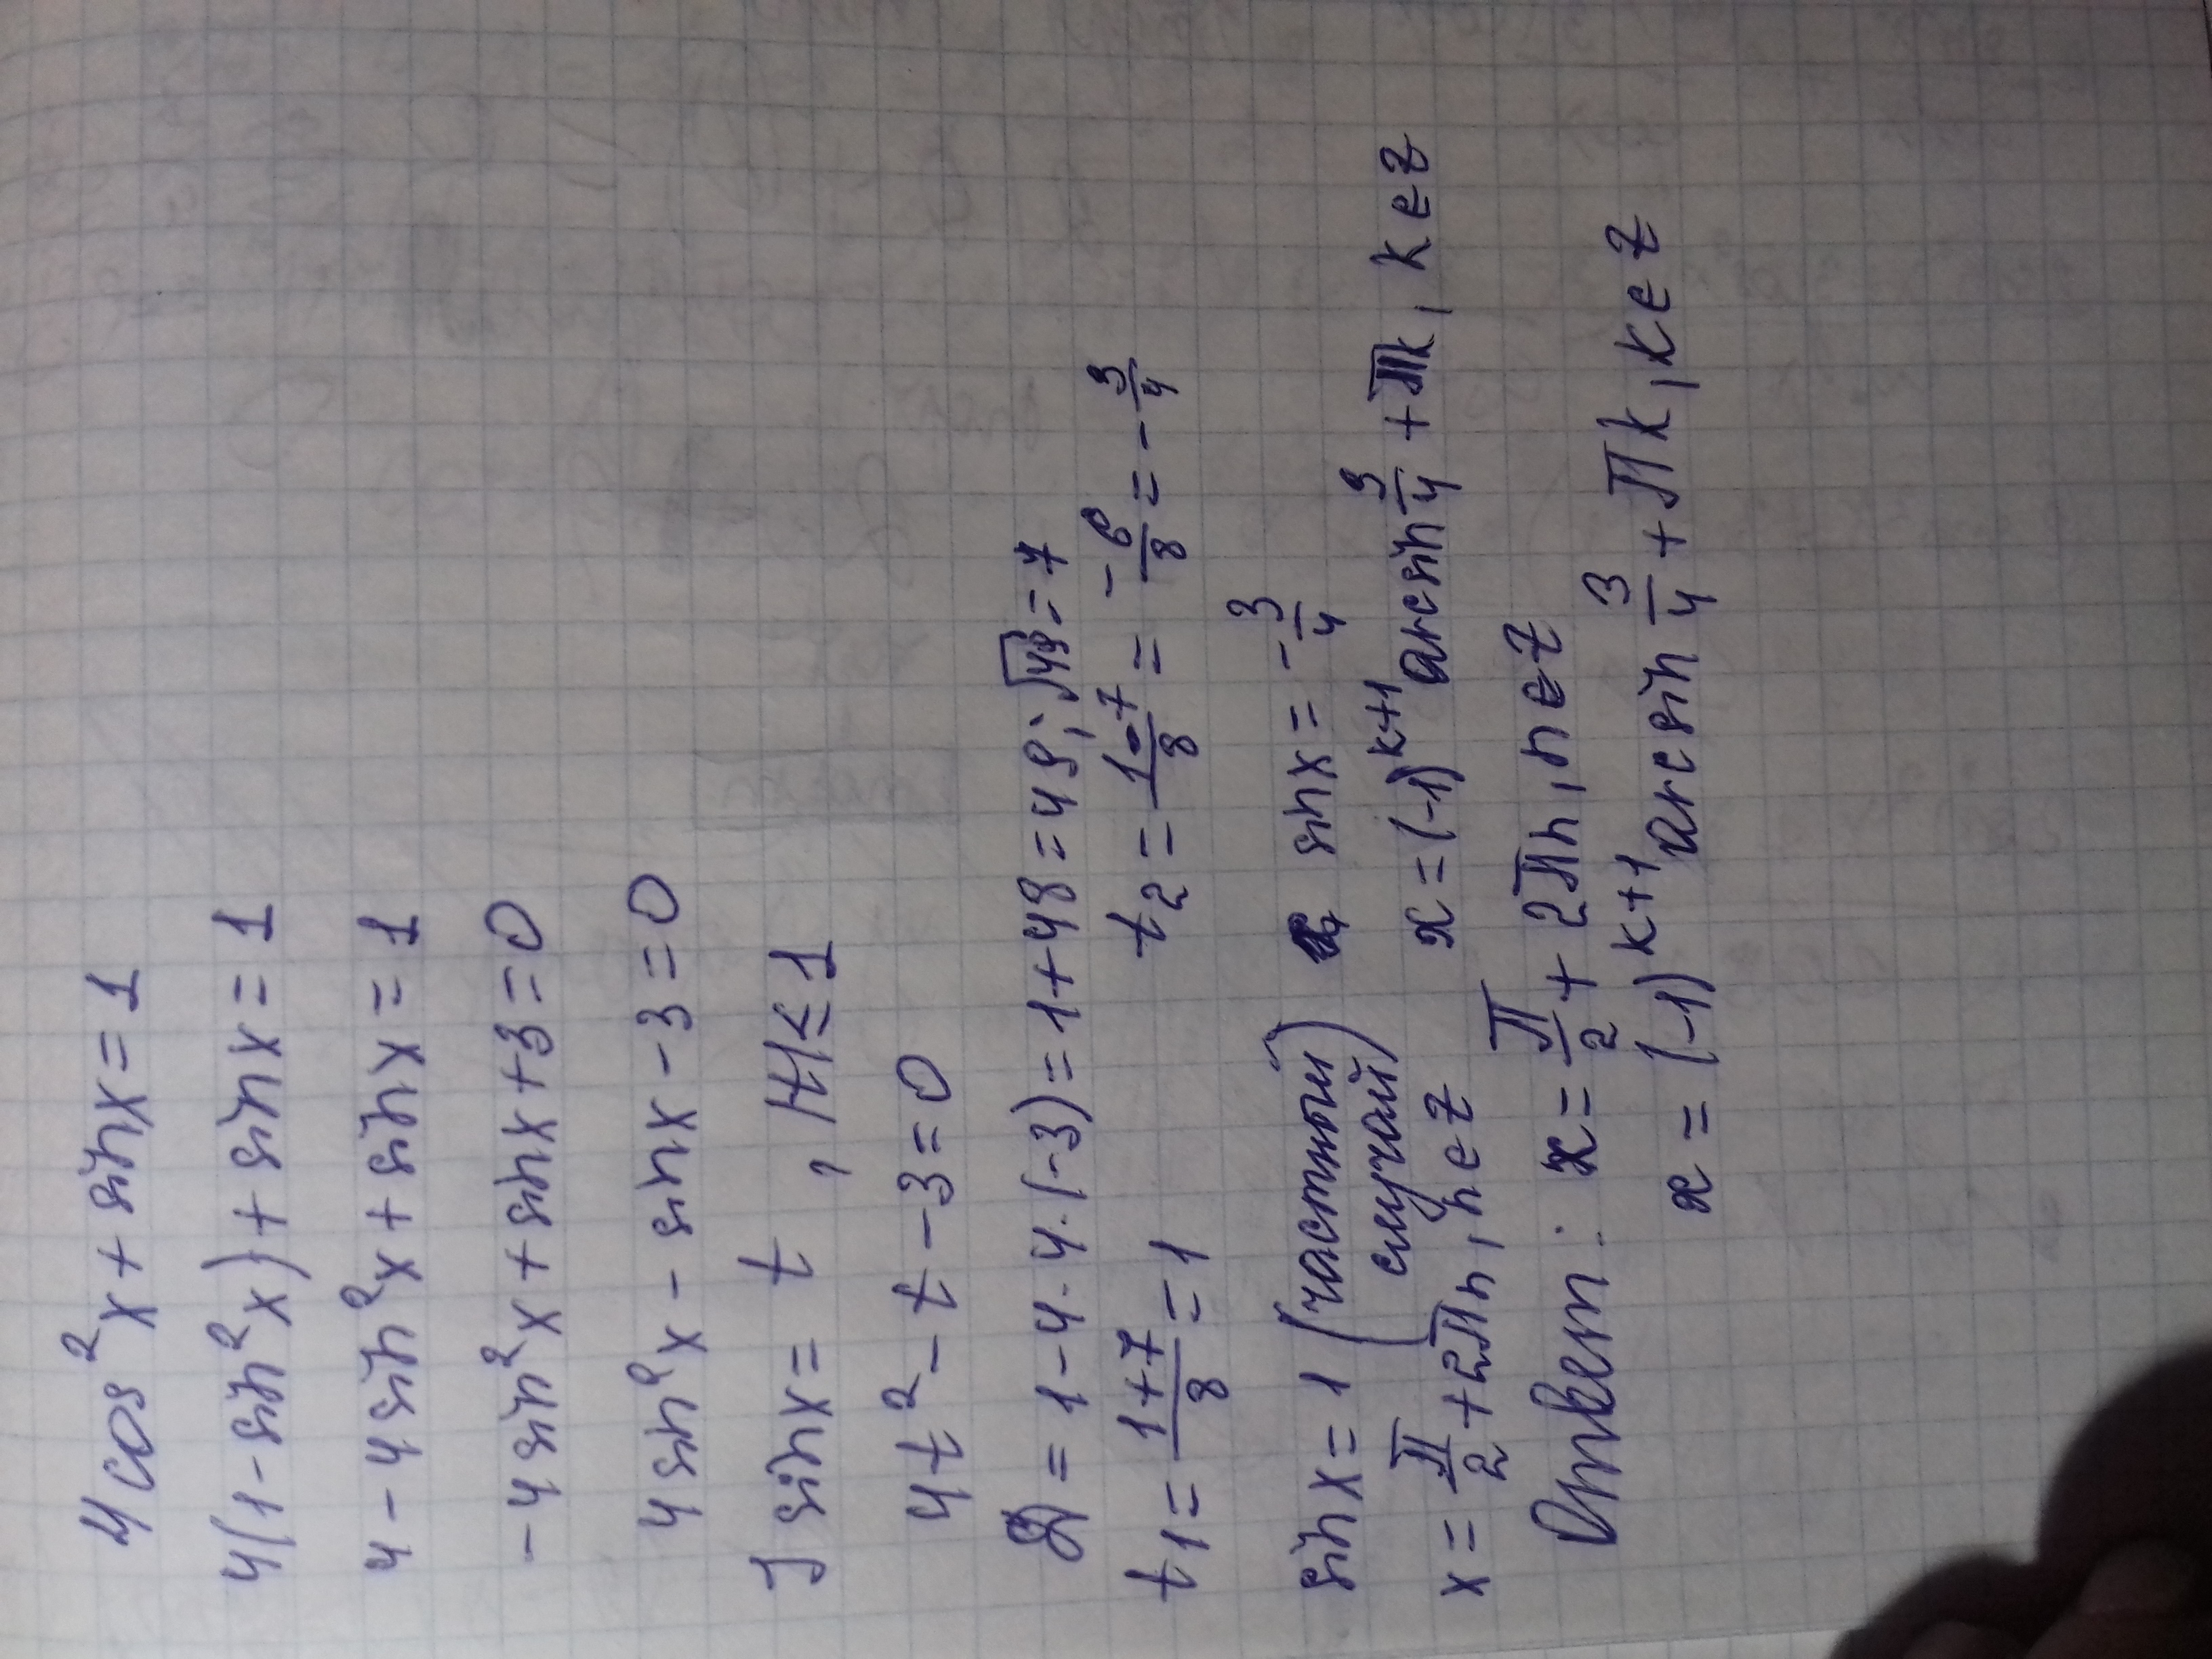 4cos²x + sinx = 1
4(1 - sin²x) + sinx = 1
4 - 4sin²x + sinx = 1
-4sin²x + sinx + 3 = 0
4sin²x - sinx - 3 = 0
] sinx = t , |t| ≤ 1
4t² - t - 3 = 0
D = 1 - 4·4·(-3) = 1 + 48 = 49; √49 = 7
t₁ = (1+7)/8 = 1 t₂ = (1-7)/8 = -6/8 = -3/4
sinx = 1 (частный случай) sinx = -3/4
x = π/2 + 2πn, n∈Z x = (-1)ᵏ⁺¹ arcsin 3/4 + πk, k∈Z
Ответ: x = π/2 + 2πn, n∈Z
x = (-1)ᵏ⁺¹ arcsin 3/4 + πk, k∈Z